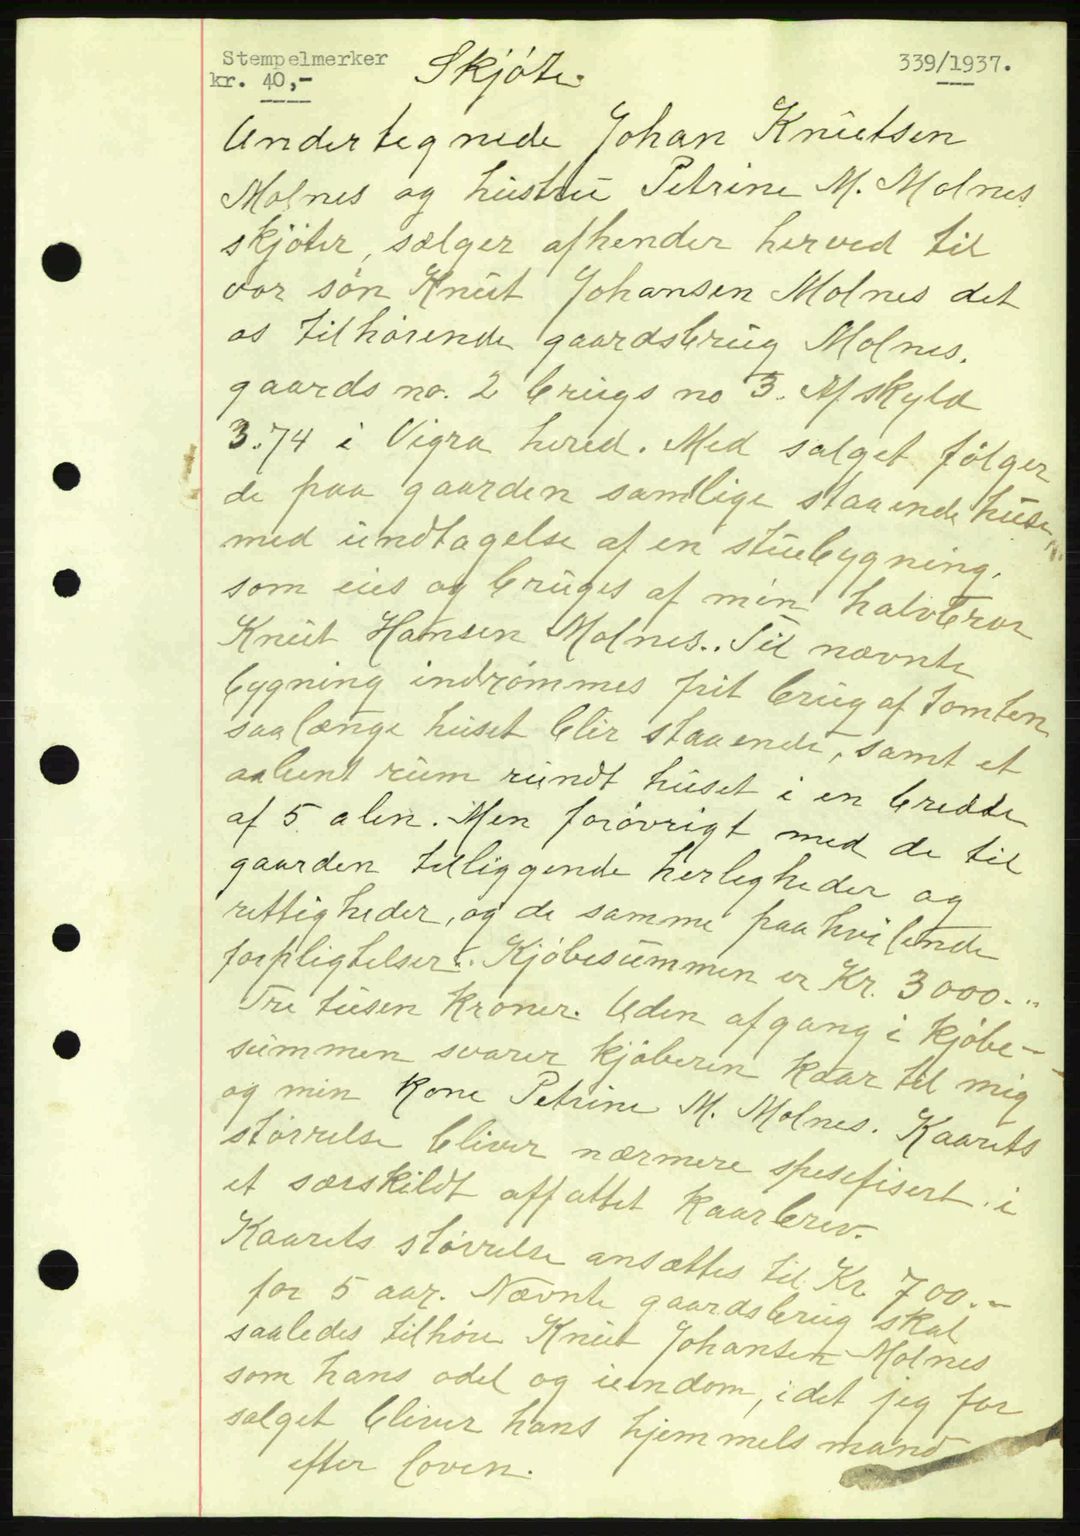 Stempelmerker
kr. 40,-
Skjöte.
339/1937.
Undertegnede Johan Knutsen
Molnes og hustru Petrine M. Molnes
skjöter, sælger afhender herved til
vor søn Knut Johansen Molnes det
os tilhørende gaardsbrug Molnes.
gaards no. 2 brugs no 3. Af skyld
3.74 i Vigra hered. Med salget følger
de paa gaarden samtlige staaende huse,
med undtagelse af en stuebygning,
som eies og bruges af min halvbror
Knut Hansen Molnes.. Til nævnte
bygning indrømmes frit brug af tomten
saalænge huset blir staaende, samt et
aabent rum rundt huset i en bredde
af 5 alen. Men forøvrigt med de til
gaarden tilliggende herligheder og
rettigheder, og de samme paahvilende
forpligtelser. Kjöbesummen er Kr. 3000.-
Tre tusen kroner. Uden afgang i kjöbe-
summen svarer kjöberen kaar til mig
og min kone Petrine M. Molnes. Kaarets
størrelse bliver nærmere spesifisert i
et særskildt affattet kaarbrev.
Kaarets størrelse ansættes til Kr. 700.-
for 5 aar. Nævnte gaardsbrug skal
saaledes tilhøre Knut Johansen Molnes
som hans odel og eiendom, idet jeg for
salget bliver hans hjemmelsmand
efter loven.